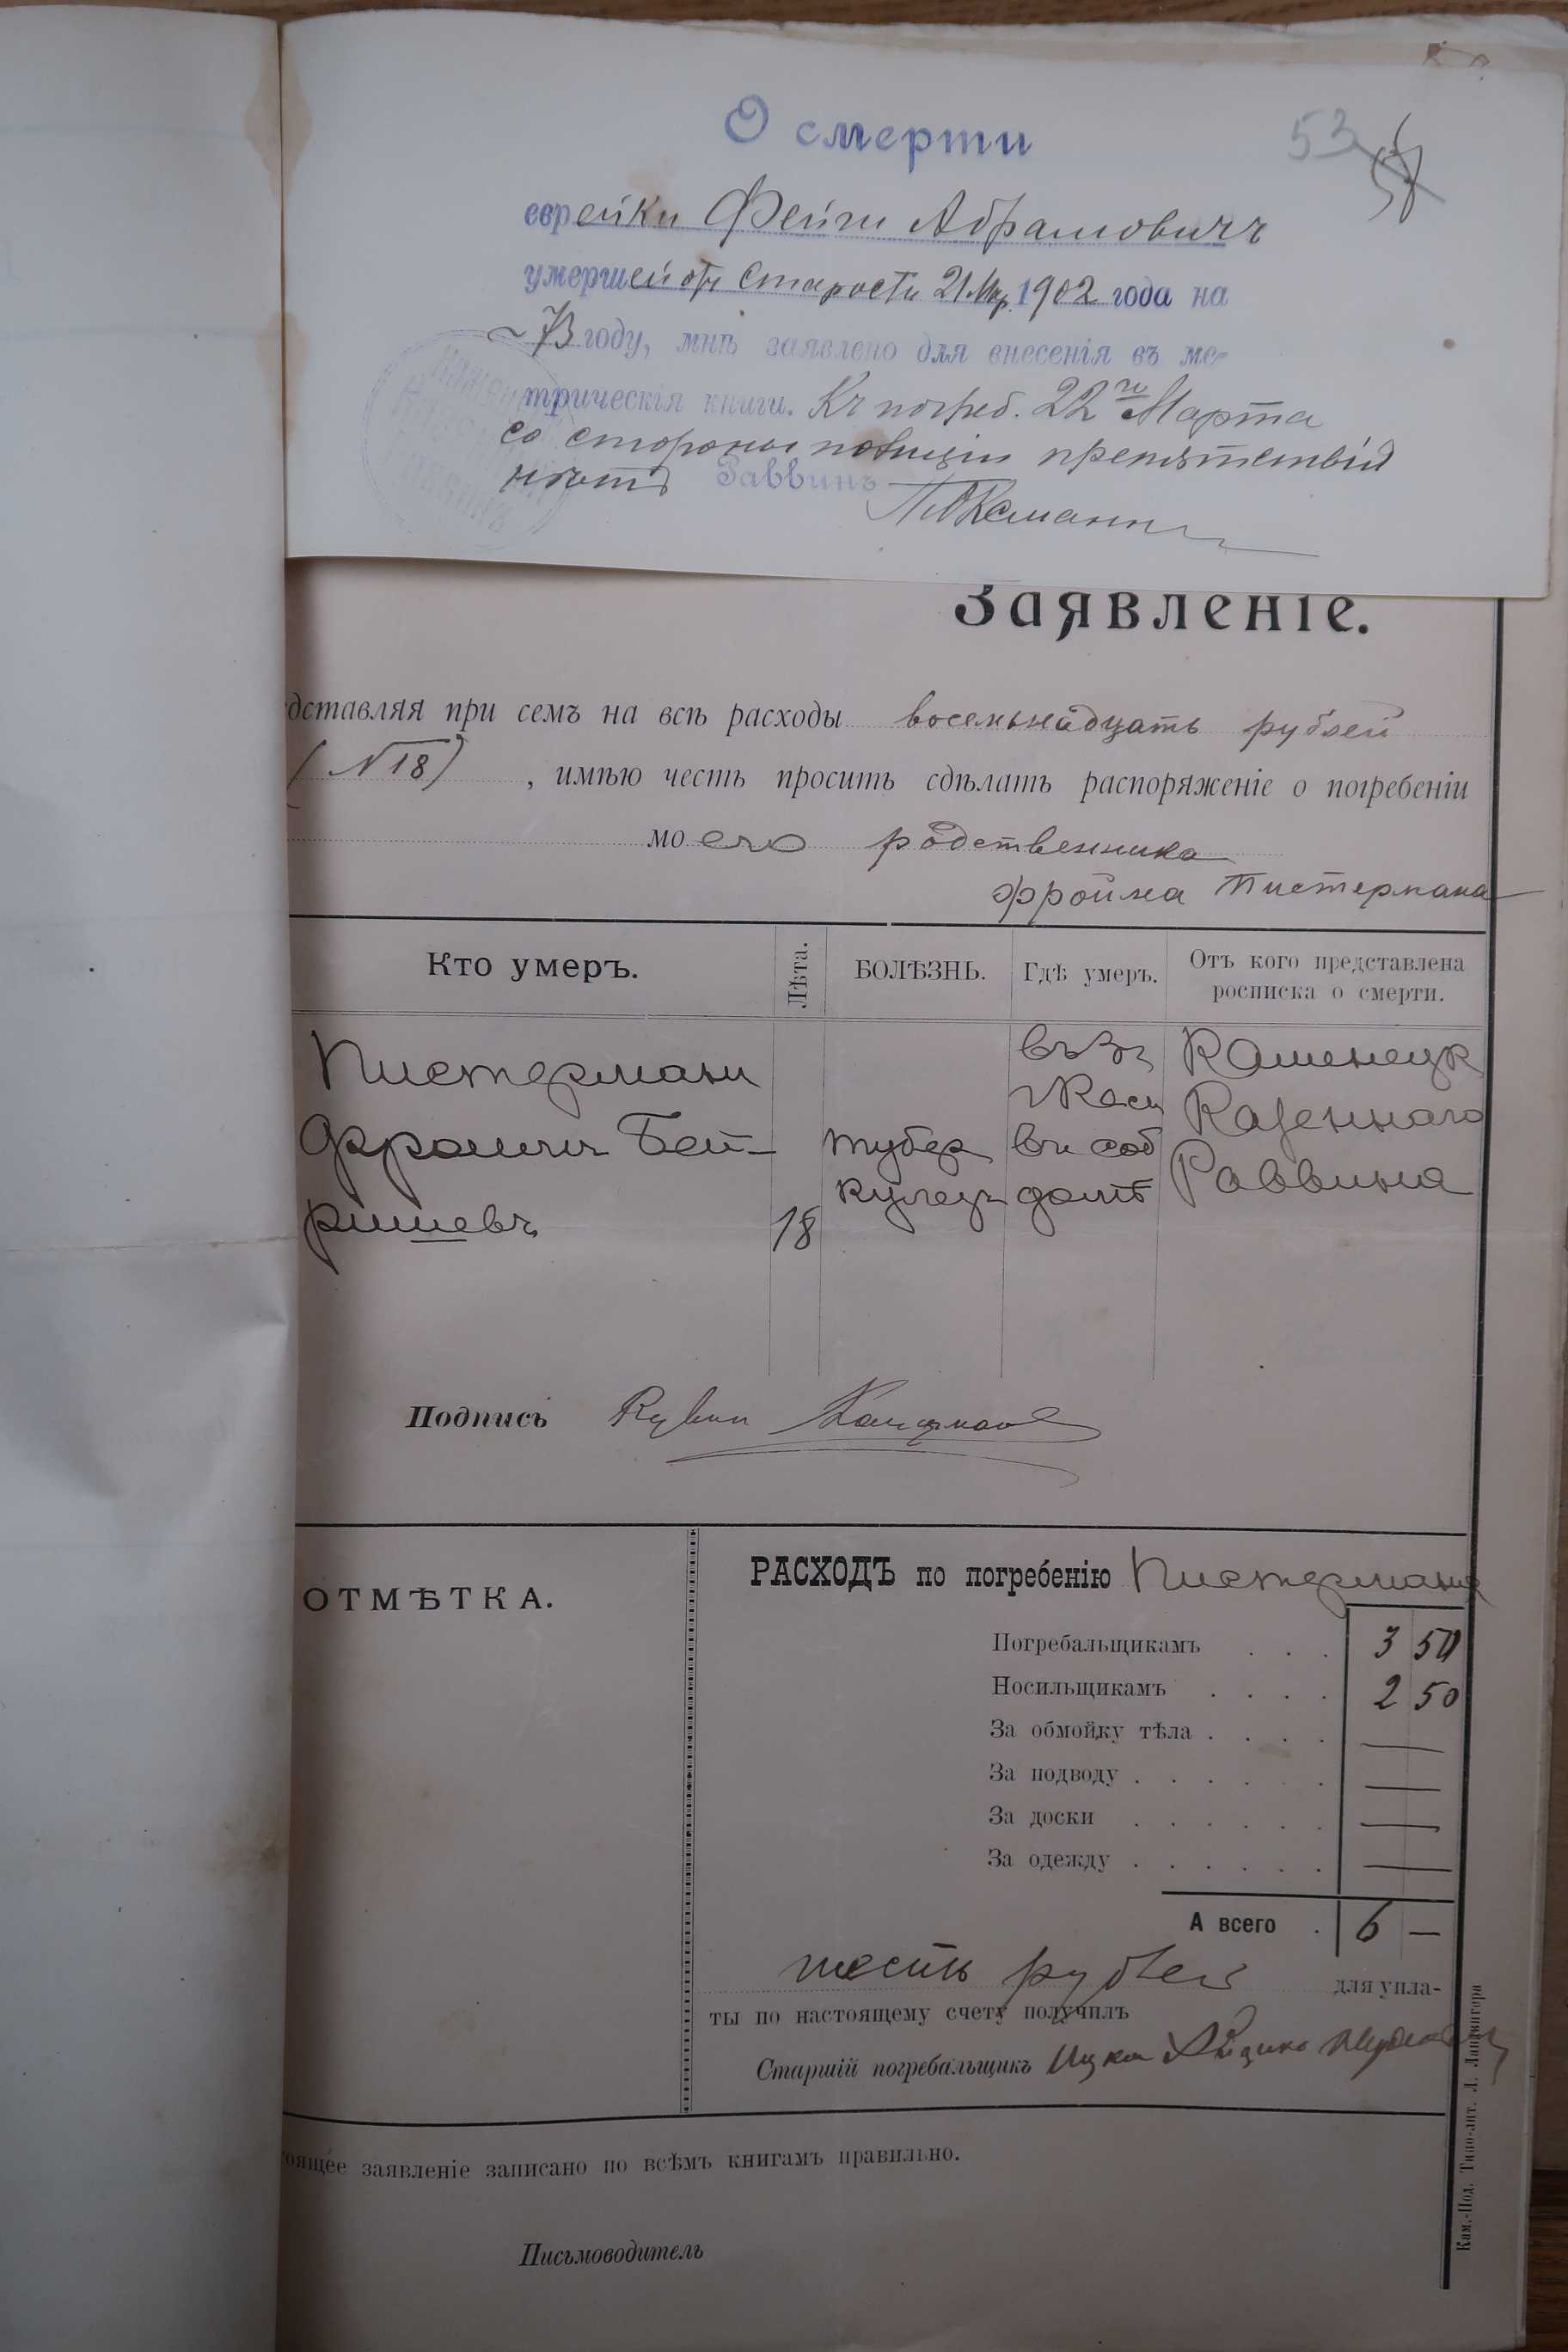 О смерти
53
еврейки Фейги Абрамовичъ
умершей отъ старости 21 Мар. 1902 года на
73 году, мнѣ заявлено для внесенія въ ме-
трическія книги. Къ погреб. 22го Марта
со стороны полиціи препятствій
нѣтъ Раввинъ
Заявленіе.
дставляя при семъ на всѣ расходы восемьнадцать рублей
(N 18) , имѣю честь просить сдѣлать распоряженіе о погребеніи
моего родственника
Фройма Пистермана
Кто умеръ. Лѣта. БОЛѢЗНЬ. Гдѣ умеръ. Отъ кого представлена
росписка о смерти.
Пистерманъ
Фроимъ Бей-
ришевъ
18
тубер
кулезъ
въ соб
домѣ
Каменецк
Казеннаго
Раввина
Подпись
ОТМѢТКА.
РАСХОДЪ по погребенію Пистермана
Погребальщикамъ . . . 3 50
Носильщикамъ . . . . 2 50
За обмойку тѣла . . . . —
За подводу . . . . . . —
За доски . . . . . . —
За одежду . . . . . . —
А всего . 6 —
шесть рублей для упла-
ты по настоящему счету получилъ
Старшій погребальщикъ Ицко
оящее заявленіе записано по всѣмъ книгамъ правильно.
Письмоводитель
Кам.-Под. Типо-лит. Л. Ландвигера